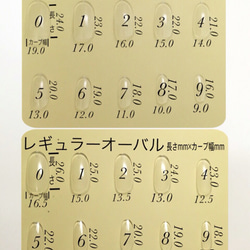 長さ
0 24.0 1 23.0 2 22.0 3 22.0 4 21.0
カーブ幅
19.0 17.0 16.0 15.0 14.0
5 20.0 6 19.0 7 18.0 8 17.0 9 16.0
13.0 12.0 11.0 10.0 9.0
レギュラーオーバル 長さmm×カーブ幅mm
長さ
0 26.0 1 25.0 2 25.0 3 24.0 4 23.0
カーブ幅
16.5 15.0 13.5 13.0 12.5
22.0 6 7 8 19.0 9 18.0